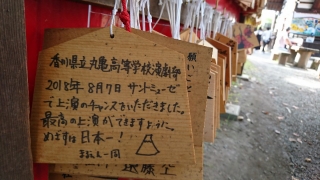 香川県立丸亀高等学校演劇部
2018年8月7日 サントミューゼ
で上演のチャンスをいただきました。
最高の上演ができますように。
めざすは日本一!
願い